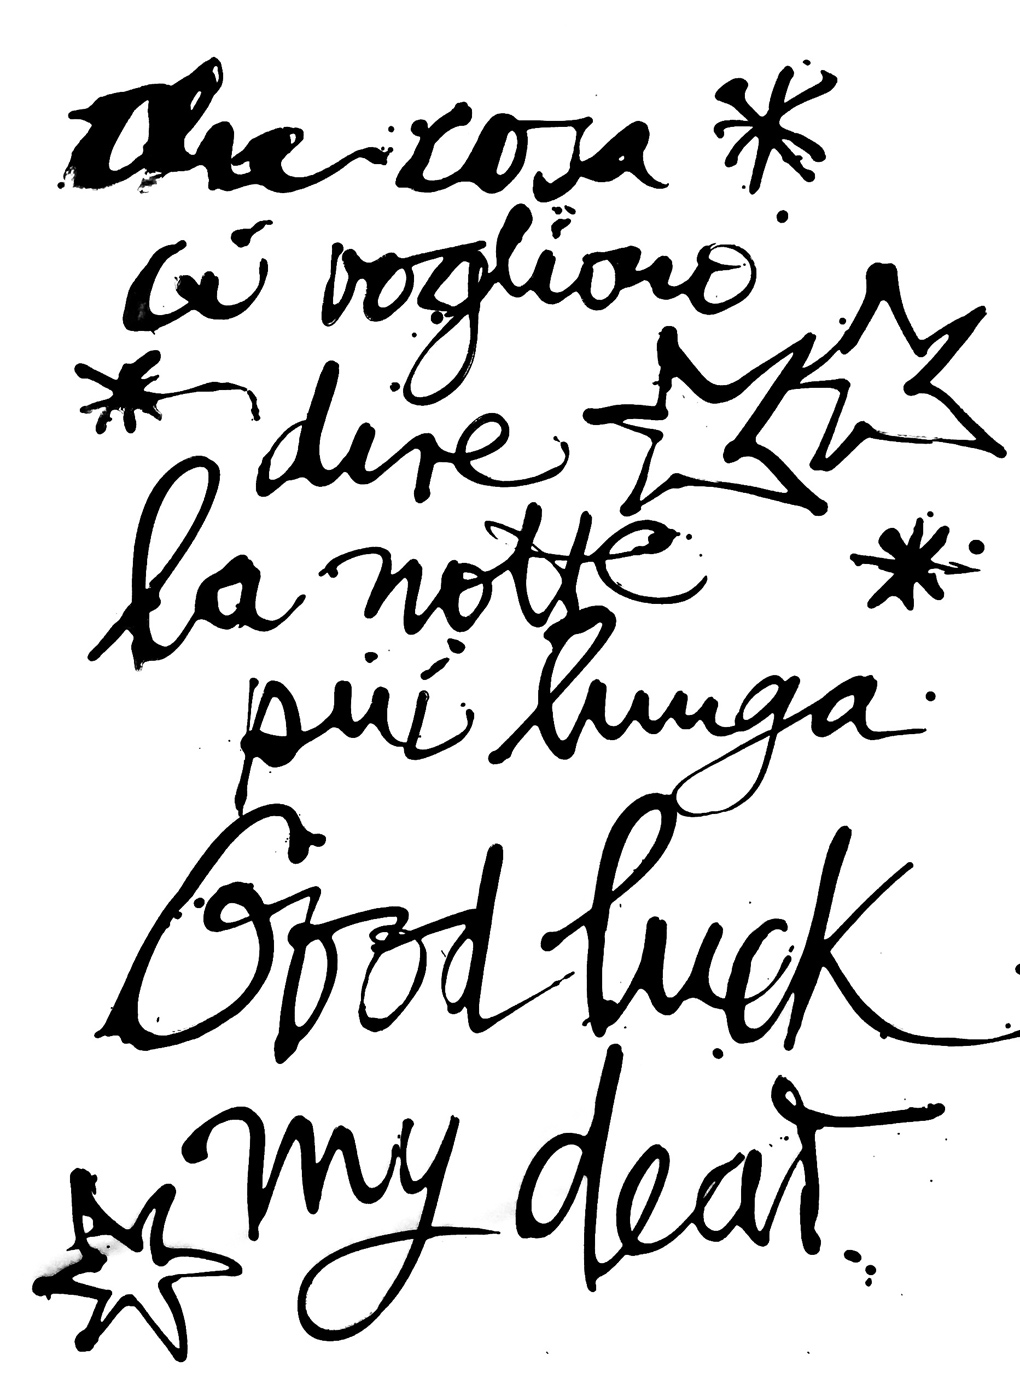 Che cosa
ci vogliono
dire
la notte
piú lunga
Good luck
my dear.